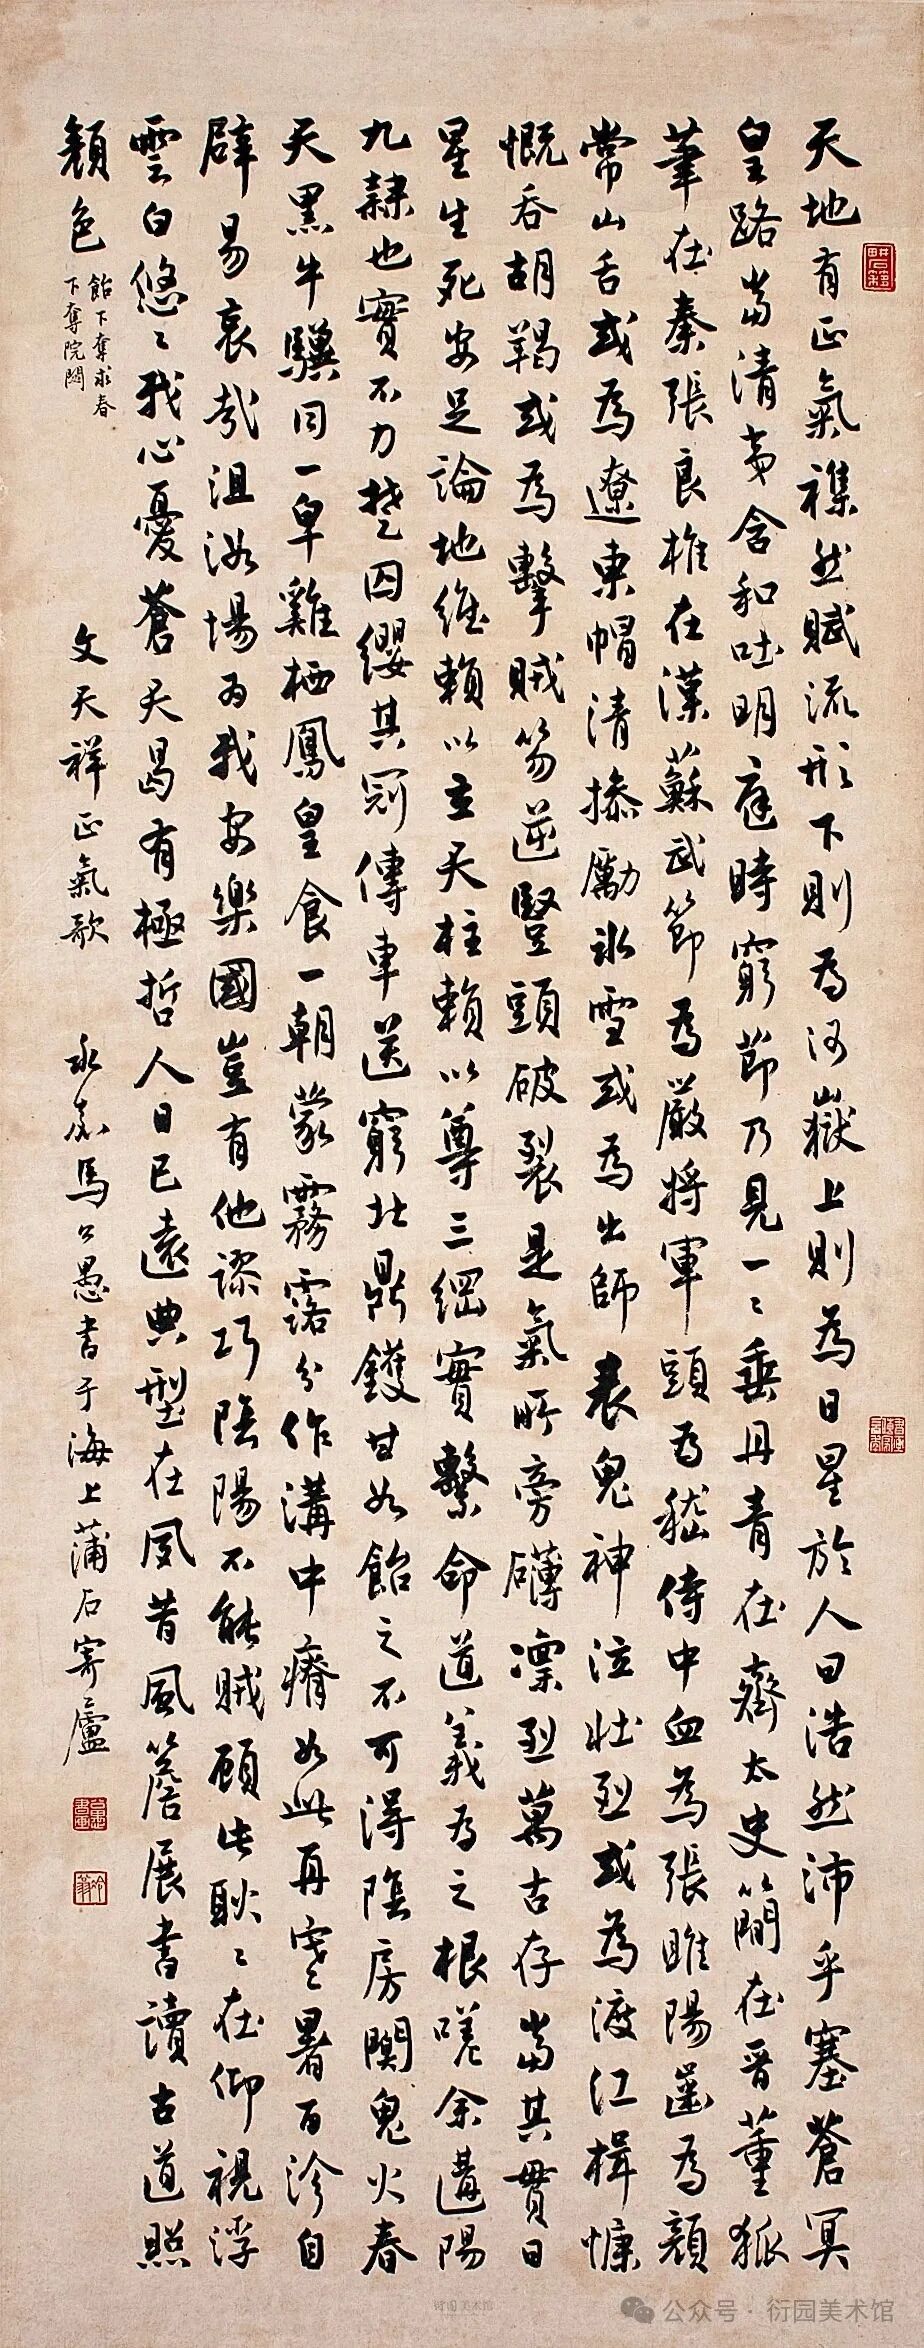 天地有正氣襍然賦流形下則為河嶽上則為日星於人曰浩然沛乎塞蒼冥
皇路當清夷含和吐明庭時窮節乃見一〻垂丹青在齊太史簡在晉董狐
筆在秦張良椎在漢蘇武節為嚴將軍頭為嵇侍中血為張睢陽齒為顏
常山舌或為遼東帽清操勵冰雪或為出師表鬼神泣壯烈或為渡江楫慷
慨吞胡羯或為擊賊笏逆豎頭破裂是氣所旁礴凜烈萬古存當其貫日
星生死安足論地維賴以立天柱賴以尊三綱實繫命道義為之根嗟余遘陽
九隸也實不力楚囚纓其冠傳車送窮北鼎鑊甘如飴之不可得陰房闃鬼火春
天黑牛驥同一皁雞栖鳳皇食一朝蒙霧露分作溝中瘠如此再寒暑百沴自
辟易哀哉沮洳場為我安樂國豈有他謬巧陰陽不能賊顧此耿〻在仰視浮
雲白悠〻我心憂蒼天曷有極哲人日已遠典型在夙昔風簷展書讀古道照
顏色
飴下奪求春
下奪院閟
文天祥正氣歌
永嘉馬公愚書于海上蒲石寄廬
公众号·衍园美术馆
衍园美术馆